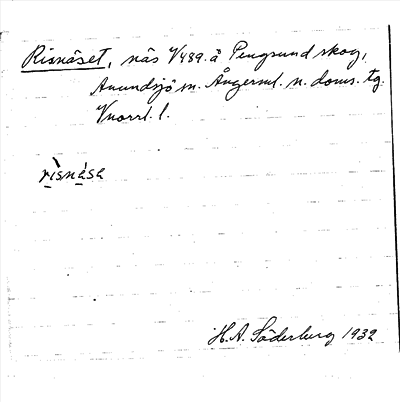 Risnäset, näs V489. å Pengsund skog,
Anundsjö sn. Ångerml. n. doms. tg.
Vnorrl. l.
rìsnása
H.A. Söderberg 1932